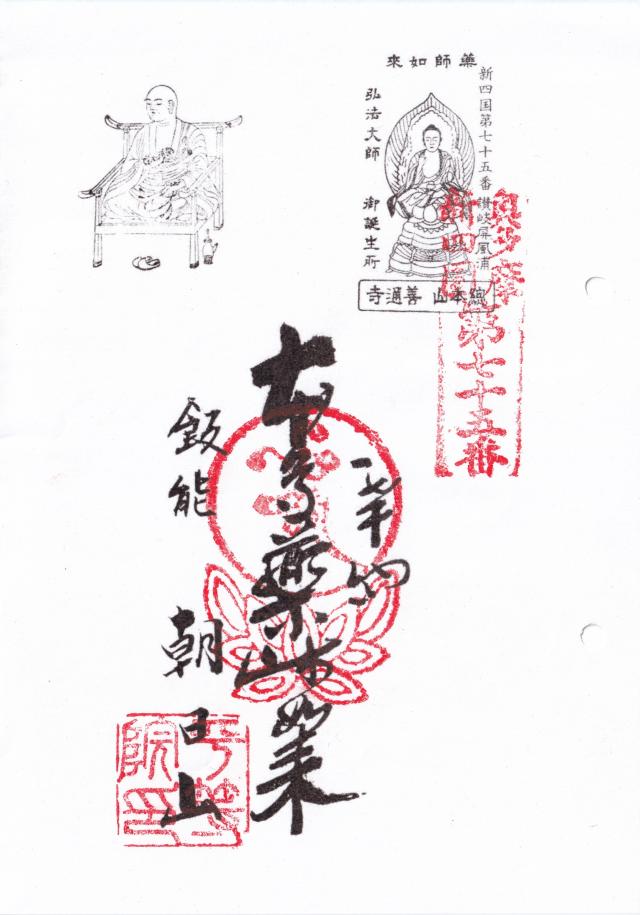 藥師如來
新四国第七十五番讃岐屏風浦
弘法大師 御誕生所
総本山 善通寺
奥多摩
新四国第七十五番
奉納
本尊薬師如来
飯能 朝日山
院印